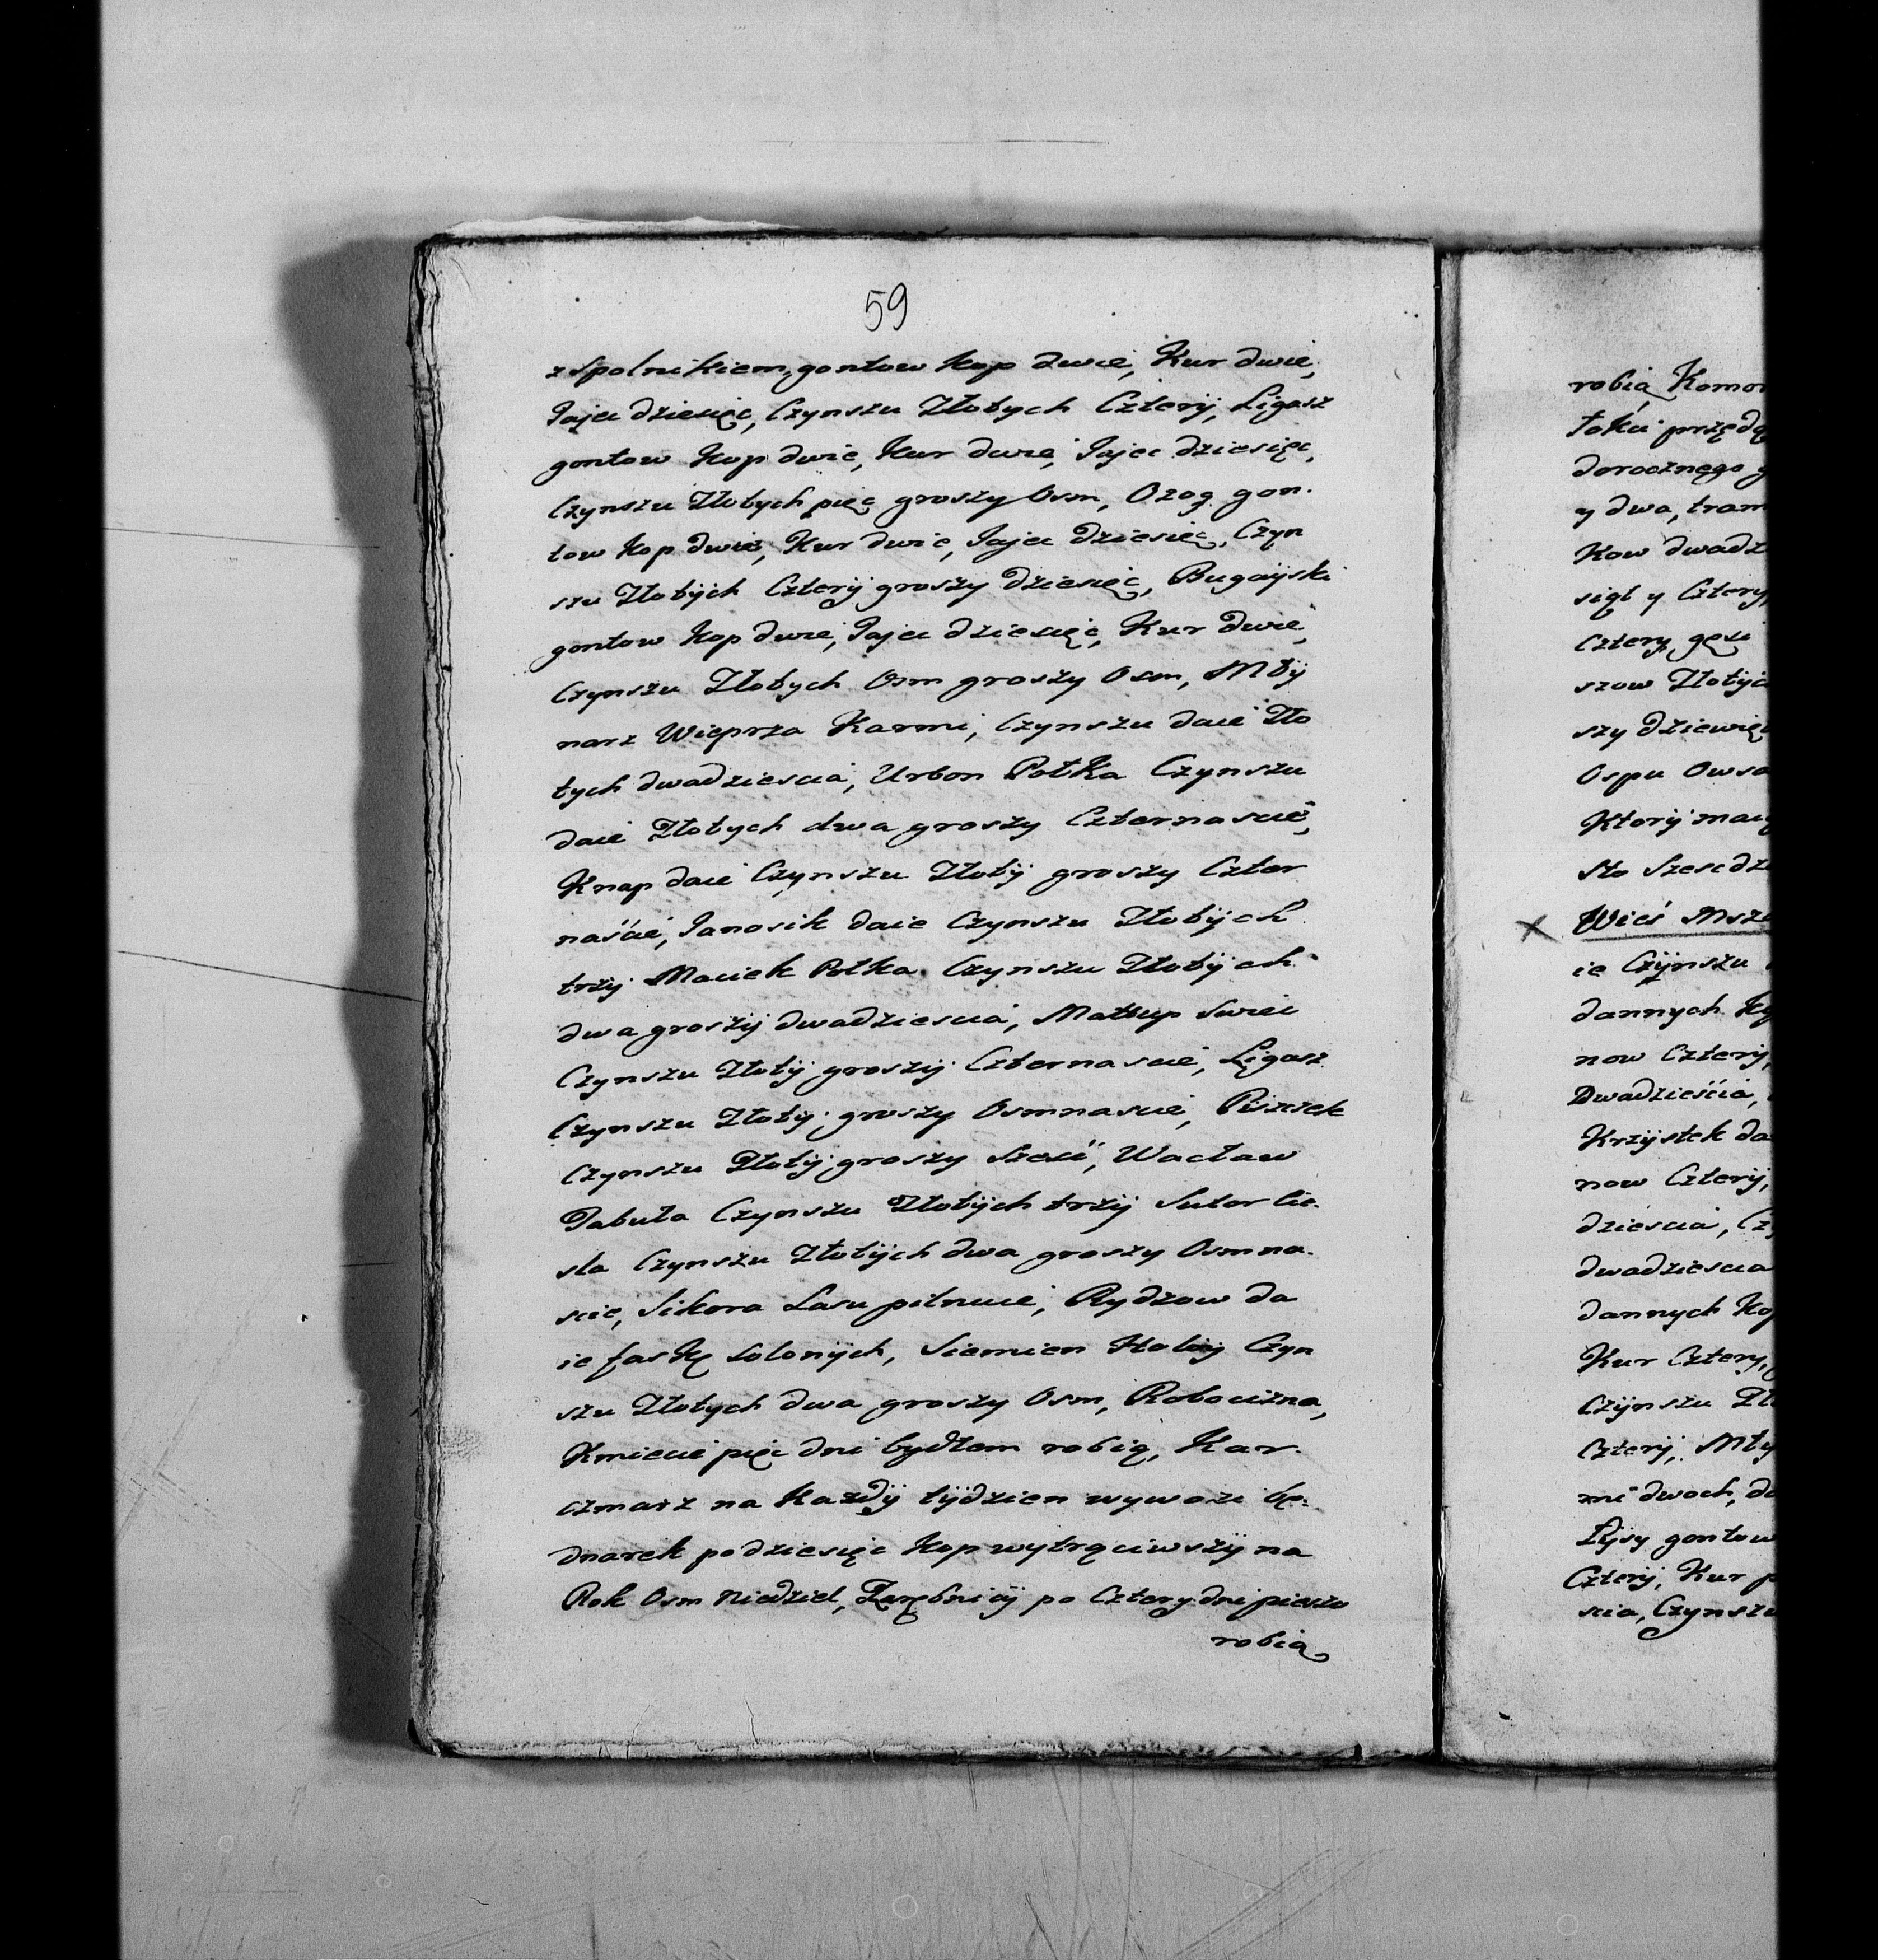 59
z Spolnikiem, gontow Kop dwie, Kur dwie,
Jajec dziesięc, Czynszu Złotych Czterÿ, Ligasz
gontow Kop dwie, Kur dwie, Jajec dziesięc,
Czynszu Złotych pięc groszy Osm, Ozog gon-
tow Kop dwie, Kur dwie, Jajec dziesięc, Czyn
szu Złotÿch Czterÿ groszy dziesięc, Bugaÿski
gontow Kop dwie, Jajec dziesięc, Kur dwie,
Czynszu Złotych Osm groszy Osm, Młÿ
narz Wieprza Karmi, Czynszu daie Zło
tych dwadziescia, Urban Potka Czynszu
daie Złotych dwa groszy Czternascie,
Knap daie Czynszu Złotÿ groszy Czter
naście, Janosik daie Czynszu Złotÿch
trzÿ Maciek Potka Czynszu Złotÿch
dwa groszÿ dwadziescia, Matus Swiec
Czynszu Złotÿ groszÿ Czternascie, Ligasz
Czynszu Złotÿ groszy Osmnascie, Piszczek
Czynszu Złotÿ groszy Szesć, Wacław
Tabuła Czynszu Złotÿch trzÿ Sutor Cie-
sla Czynszu Złotÿch dwa groszy Osmna-
scie, Sikora Lasu pilnuie, Rydzow da
ie faskę Solonÿch, Siemien Haley Czyn
szu Złotych dwa groszy Osm, Robocizna,
Kmiecie pięc dni bydłem robią, Kar-
czmarz na Kazdÿ tÿdzien wywozi be-
dnarek po dziesięc Kop wytrąciwszÿ na
Rok Osm Niedziel, Zarębnicÿ po Cztery dni pieszo
robią
robią Komor
toku przędą
dorocznęgo g
y dwa, tram
Kow dwadz
siąt y Cztery,
Cztery, gęsi
szow Złotÿc
szy dziewięc
Ospu Owsa
Ktorÿ maią
Sto Szescdz
x Wieś Msz
ie Czÿnszu
dannych Ko
now Czterÿ,
Dwadzieścia,
Krzÿstek da
now Czterÿ,
dziescia, Cz
dwadziescia
dannych Ko
Kur Cztery,
Czÿnszu Zł
Czterÿ, Mły
mi dwoch, da
Łÿsy gontow
Czterÿ, Kur p
scia, Czynszu